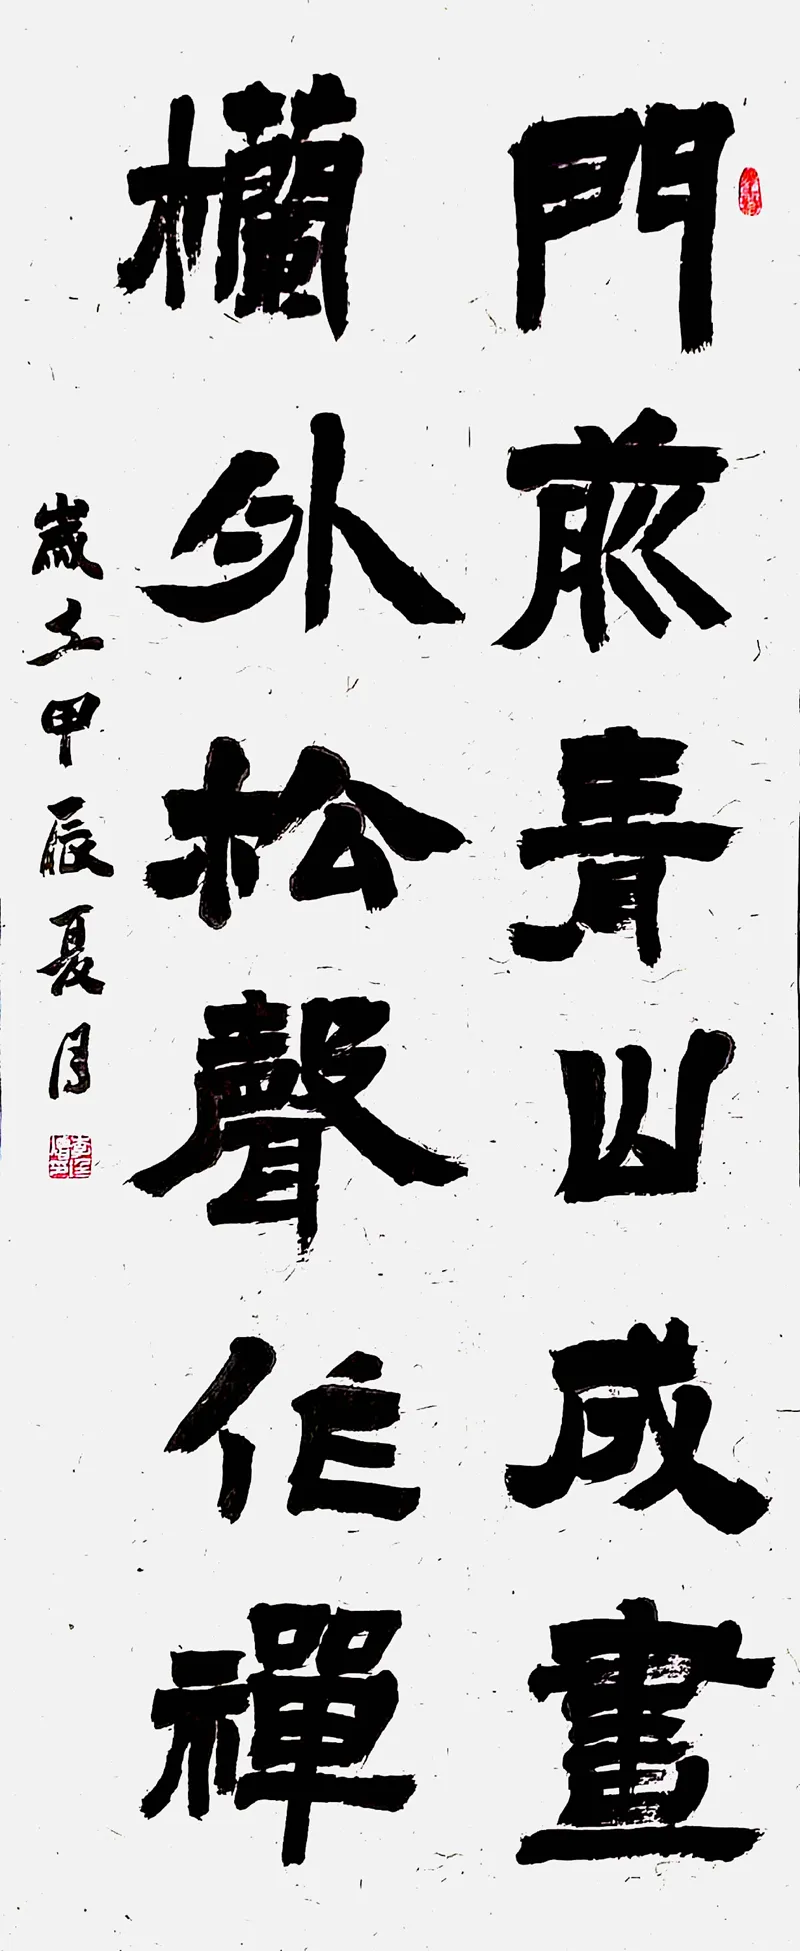 門前青山成畫
欄外松聲作禪
歲在甲辰夏月